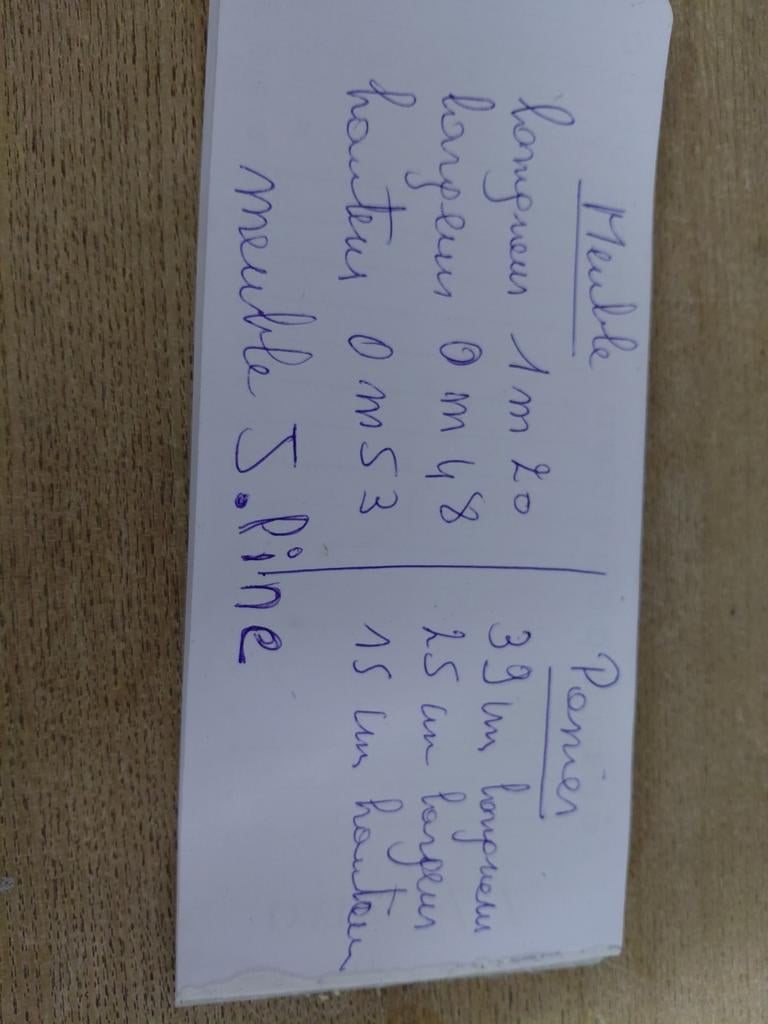 Meuble
longueur 1 m 20
largeur 0 m 48
hauteur 0 m 53
Panier
39 cm longueur
25 cm largeur
15 cm hauteur
meuble J.Pine